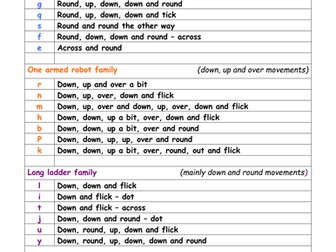 g Round, up, down, down and round
q Round, up, down, down and tick
s Round and round the other way
f Round, down, down and round – across
e Across and round
One armed robot family (down, up and over movements)
r Down, up and over a bit
n Down, up, over, down and flick
m Down, up, over and down, up, over, down and flick
h Down, down, up a bit, over, down and flick
b Down, down, up a bit, over and round
P Down, down, up, up, over and round
k Down, down, up a bit, over, round, out and flick
Long ladder family (mainly down and round movements)
l Down, down and flick
i Down and flick – dot
t Down, down and flick – across
j Down, down and round – dot
u Down, round, up, down and flick
y Down, round, up, down, down and round